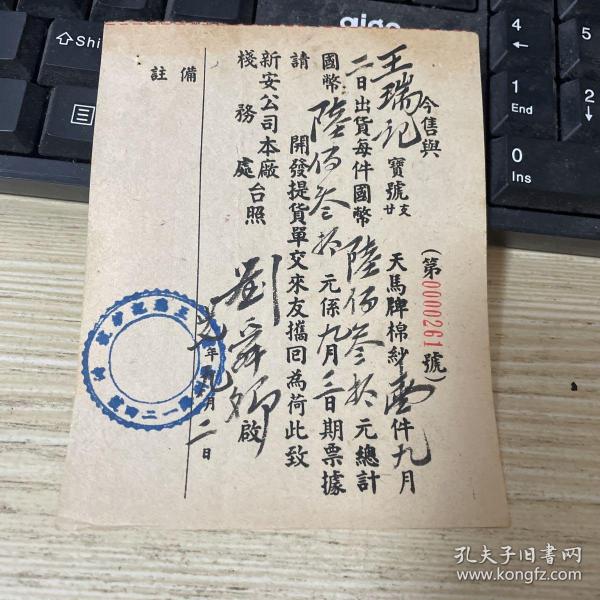 （第0000261號）
今售與
王瑞記寶號廿支天馬牌棉紗壹件九月
二日出貨每件國幣陸佰叁拾元總計
國幣陸佰叁拾元係九月三日期票據
請開發提貨單交來友攜回為荷此致
新安公司本廠
棧務處台照
劉舜卿啟
年九月二日
備註
aigo
Shi
4
1
End
0
Ins
5
2
孔夫子旧书网
www.kongfz.com